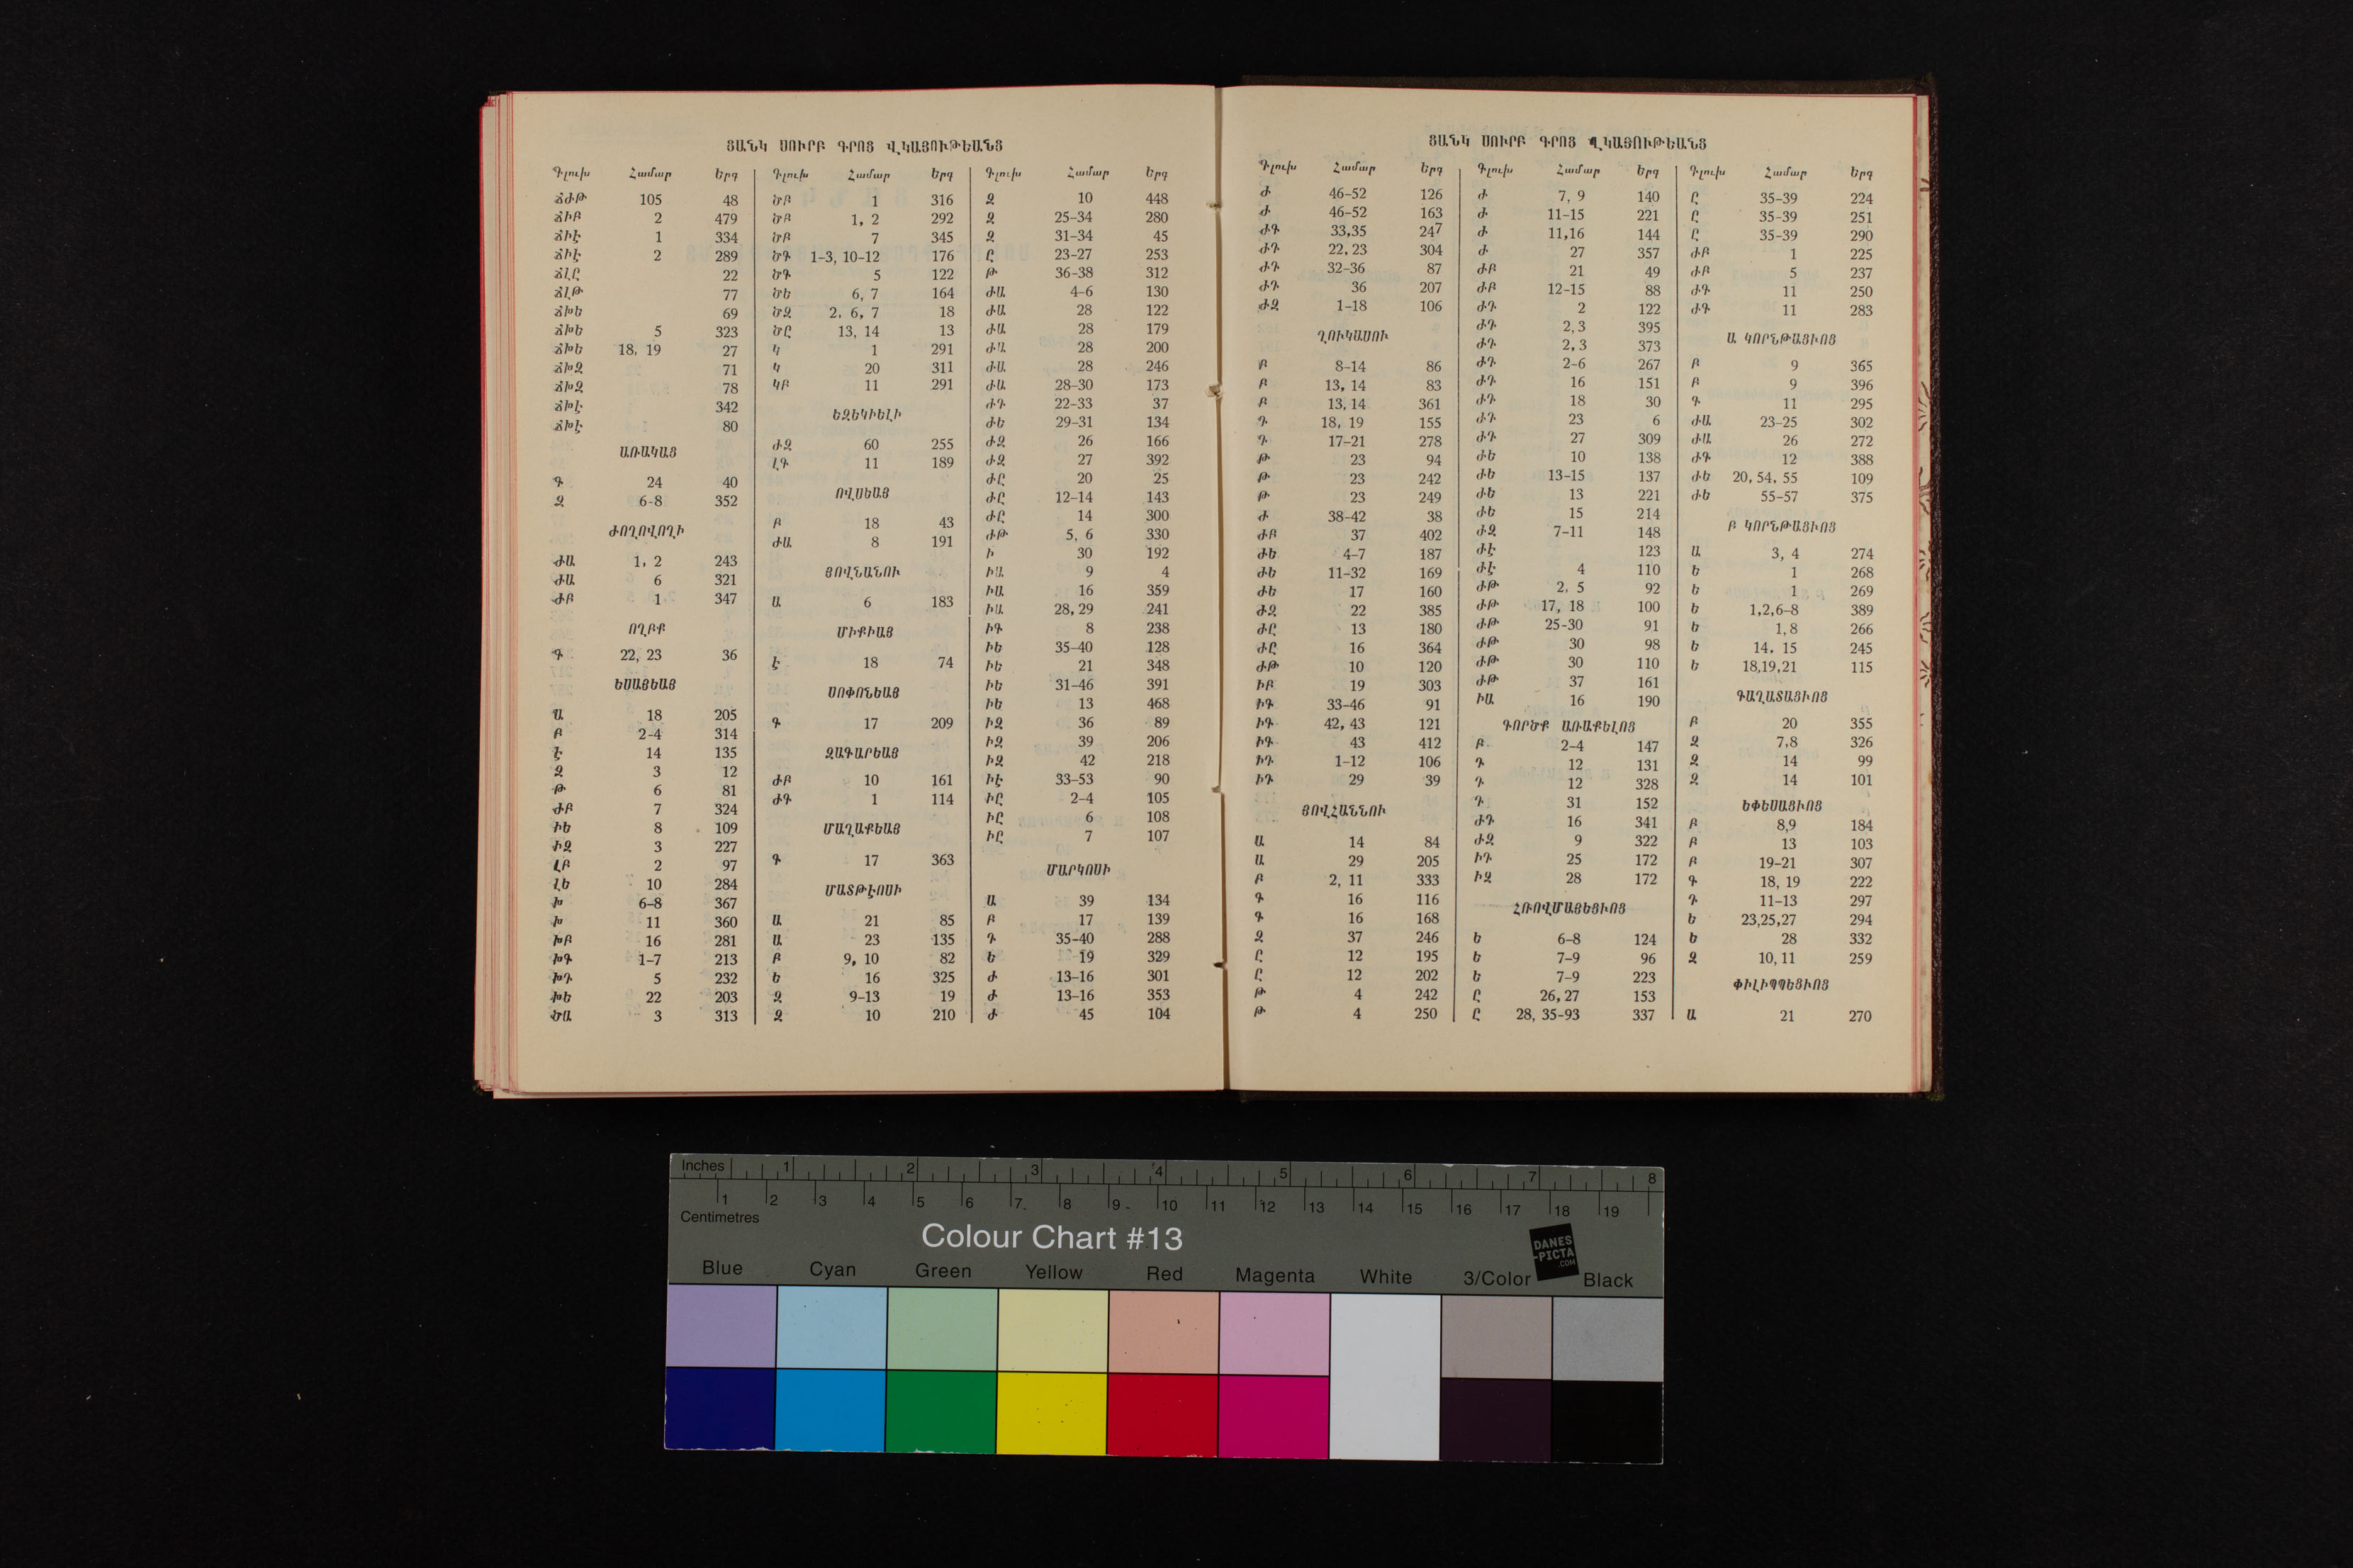 ՑԱՆԿ ՍՈՒՐԲ ԳՐՈՑ ՎԿԱՅՈՒԹԵԱՆՑ
Գլուխ Համար Երգ
ՃԺԹ 105 48
ՃԻԲ 2 479
ՃԻԷ 1 334
ՃԻԷ 2 289
ՃԼԸ 22
ՃԼԹ 77
ՃԽԵ 69
ՃԽԵ 5 323
ՃԽԵ 18, 19 27
ՃԽԶ 71
ՃԽԶ 78
ՃԽԷ 342
ՃԽԷ 80
ԱՌԱԿԱՑ
Գ 24 40
Զ 6-8 352
ԺՈՂՈՎՈՂԻ
ԺԱ 1, 2 243
ԺԱ 6 321
ԺԲ 1 347
ՈՂԲՔ
Գ 22, 23 36
ԵՍԱՅԵԱՅ
Ա 18 205
Բ 2-4 314
Է 14 135
Զ 3 12
Թ 6 81
ԺԲ 7 324
ԻԵ 8 109
ԻԶ 3 227
ԼԲ 2 97
ԼԵ 10 284
Խ 6-8 367
Խ 11 360
ԽԲ 16 281
ԽԳ 1-7 213
ԽԴ 5 232
ԽԵ 22 203
ԾԱ 3 313
Գլուխ Համար Երգ
ԾԲ 1 316
ԾԲ 1, 2 292
ԾԲ 7 345
ԾԳ 1-3, 10-12 176
ԾԳ 5 122
ԾԵ 6, 7 164
ԾԶ 2, 6, 7 18
ԾԸ 13, 14 13
Կ 1 291
Կ 20 311
ԿԲ 11 291
ԵԶԵԿԻԵԼԻ
ԺԶ 60 255
ԼԳ 11 189
ՈՎՍԵԱՅ
Բ 18 43
ԺԱ 8 191
ՅՈՎՆԱՆՈՒ
Ա 6 183
ՄԻՔԻԱՅ
Է 18 74
ՍՈՓՈՆԵԱՅ
Գ 17 209
ԶԱԳԱՐԵԱՅ
ԺԲ 10 161
ԺԳ 1 114
ՄԱՂԱՔԵԱՅ
Գ 17 363
ՄԱՏԹԷՈՍԻ
Ա 21 85
Ա 23 135
Բ 9, 10 82
Ե 16 325
Զ 9-13 19
Զ 10 210
Գլուխ Համար Երգ
Զ 10 448
Զ 25-34 280
Զ 31-34 45
Ը 23-27 253
Թ 36-38 312
ԺԱ 4-6 130
ԺԱ 28 122
ԺԱ 28 179
ԺԱ 28 200
ԺԱ 28 246
ԺԱ 28-30 173
ԺԳ 22-33 37
ԺԵ 29-31 134
ԺԶ 26 166
ԺԶ 27 392
ԺԸ 20 25
ԺԸ 12-14 143
ԺԸ 14 300
ԺԹ 5, 6 330
Ի 30 192
ԻԱ 9 4
ԻԱ 16 359
ԻԱ 28, 29 241
ԻԳ 8 238
ԻԵ 35-40 128
ԻԵ 21 348
ԻԵ 31-46 391
ԻԵ 13 468
ԻԶ 36 89
ԻԶ 39 206
ԻԶ 42 218
ԻԷ 33-53 90
ԻԸ 2-4 105
ԻԸ 6 108
ԻԸ 7 107
ՄԱՐԿՈՍԻ
Ա 39 134
Բ 17 139
Դ 35-40 288
Ե 19 329
Ժ 13-16 301
Ժ 13-16 353
Ժ 45 104
ՑԱՆԿ ՍՈՒՐԲ ԳՐՈՑ ՎԿԱՅՈՒԹԵԱՆՑ
Գլուխ Համար Երգ
Ժ 46-52 126
Ժ 46-52 163
ԺԳ 33,35 247
ԺԴ 22, 23 304
ԺԴ 32-36 87
ԺԴ 36 207
ԺԶ 1-18 106
ՂՈՒԿԱՍՈՒ
Բ 8-14 86
Բ 13, 14 83
Բ 13, 14 361
Դ 18, 19 155
Դ 17-21 278
Թ 23 94
Թ 23 242
Թ 23 249
Ժ 38-42 38
ԺԲ 37 402
ԺԵ 4-7 187
ԺԵ 11-32 169
ԺԵ 17 160
ԺԶ 22 385
ԺԸ 13 180
ԺԸ 16 364
ԺԹ 10 120
ԻԲ 19 303
ԻԳ 33-46 91
ԻԳ 42, 43 121
ԻԳ 43 412
ԻԴ 1-12 106
ԻԴ 29 39
ՅՈՎՀԱՆՆՈՒ
Ա 14 84
Ա 29 205
Բ 2, 11 333
Գ 16 116
Գ 16 168
Զ 37 246
Ը 12 195
Ը 12 202
Թ 4 242
Թ 4 250
Գլուխ Համար Երգ
Ժ 7, 9 140
Ժ 11-15 221
Ժ 11,16 144
Ժ 27 357
ԺԲ 21 49
ԺԲ 12-15 88
ԺԴ 2 122
ԺԴ 2, 3 395
ԺԴ 2, 3 373
ԺԴ 2-6 267
ԺԴ 16 151
ԺԴ 18 30
ԺԴ 23 6
ԺԴ 27 309
ԺԵ 10 138
ԺԵ 13-15 137
ԺԵ 13 221
ԺԵ 15 214
ԺԶ 7-11 148
ԺԷ 123
ԺԷ 4 110
ԺԹ 2, 5 92
ԺԹ 17, 18 100
ԺԹ 25-30 91
ԺԹ 30 98
ԺԹ 30 110
ԺԹ 37 161
ԻԱ 16 190
ԳՈՐԾՔ ԱՌԱՔԵԼՈՑ
Բ 2-4 147
Դ 12 131
Դ 12 328
Դ 31 152
ԺԴ 16 341
ԺԶ 9 322
ԻԴ 25 172
ԻԶ 28 172
ՀՌՈՎՄԱՅԵՑԻՈՑ
Ե 6-8 124
Ե 7-9 96
Ե 7-9 223
Ը 26, 27 153
Ը 28, 35-93 337
Գլուխ Համար Երգ
Ը 35-39 224
Ը 35-39 251
Ը 35-39 290
ԺԲ 1 225
ԺԲ 5 237
ԺԳ 11 250
ԺԳ 11 283
Ա ԿՈՐՆԹԱՑԻՈՑ
Բ 9 365
Բ 9 396
Գ 11 295
ԺԱ 23-25 302
ԺԱ 26 272
ԺԳ 12 388
ԺԵ 20, 54, 55 109
ԺԵ 55-57 375
Բ ԿՈՐՆԹԱՑԻՈՑ
Ա 3, 4 274
Ե 1 268
Ե 1 269
Ե 1,2,6-8 389
Ե 1, 8 266
Ե 14, 15 245
Ե 18,19,21 115
ԳԱՂԱՏԱՑԻՈՑ
Բ 20 355
Զ 7,8 326
Զ 14 99
Զ 14 101
ԵՓԵՍԱՑԻՈՑ
Բ 8,9 184
Բ 13 103
Բ 19-21 307
Գ 18, 19 222
Դ 11-13 297
Ե 23,25,27 294
Ե 28 332
Զ 10, 11 259
ՓԻԼԻՊՊԵՑԻՈՑ
Ա 21 270
Inches 1 2 3 4 5 6 7 8
1 2 3 4 5 6 7 8 9 10 11 12 13 14 15 16 17 18 19
Centimetres
Colour Chart #13
DANES
-PICTA
.COM
Blue Cyan Green Yellow Red Magenta White 3/Color Black